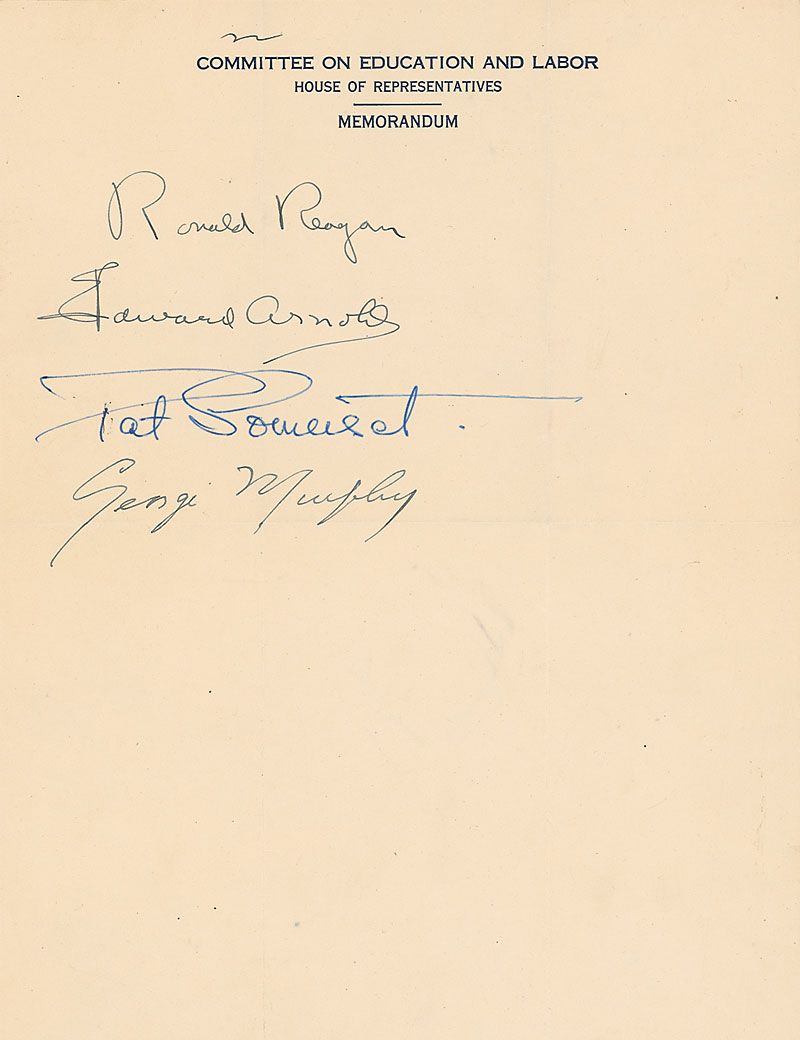 COMMITTEE ON EDUCATION AND LABOR
HOUSE OF REPRESENTATIVES
MEMORANDUM
Ronald Reagan
Edward Arnold
Pat Somerset.
George Murphy